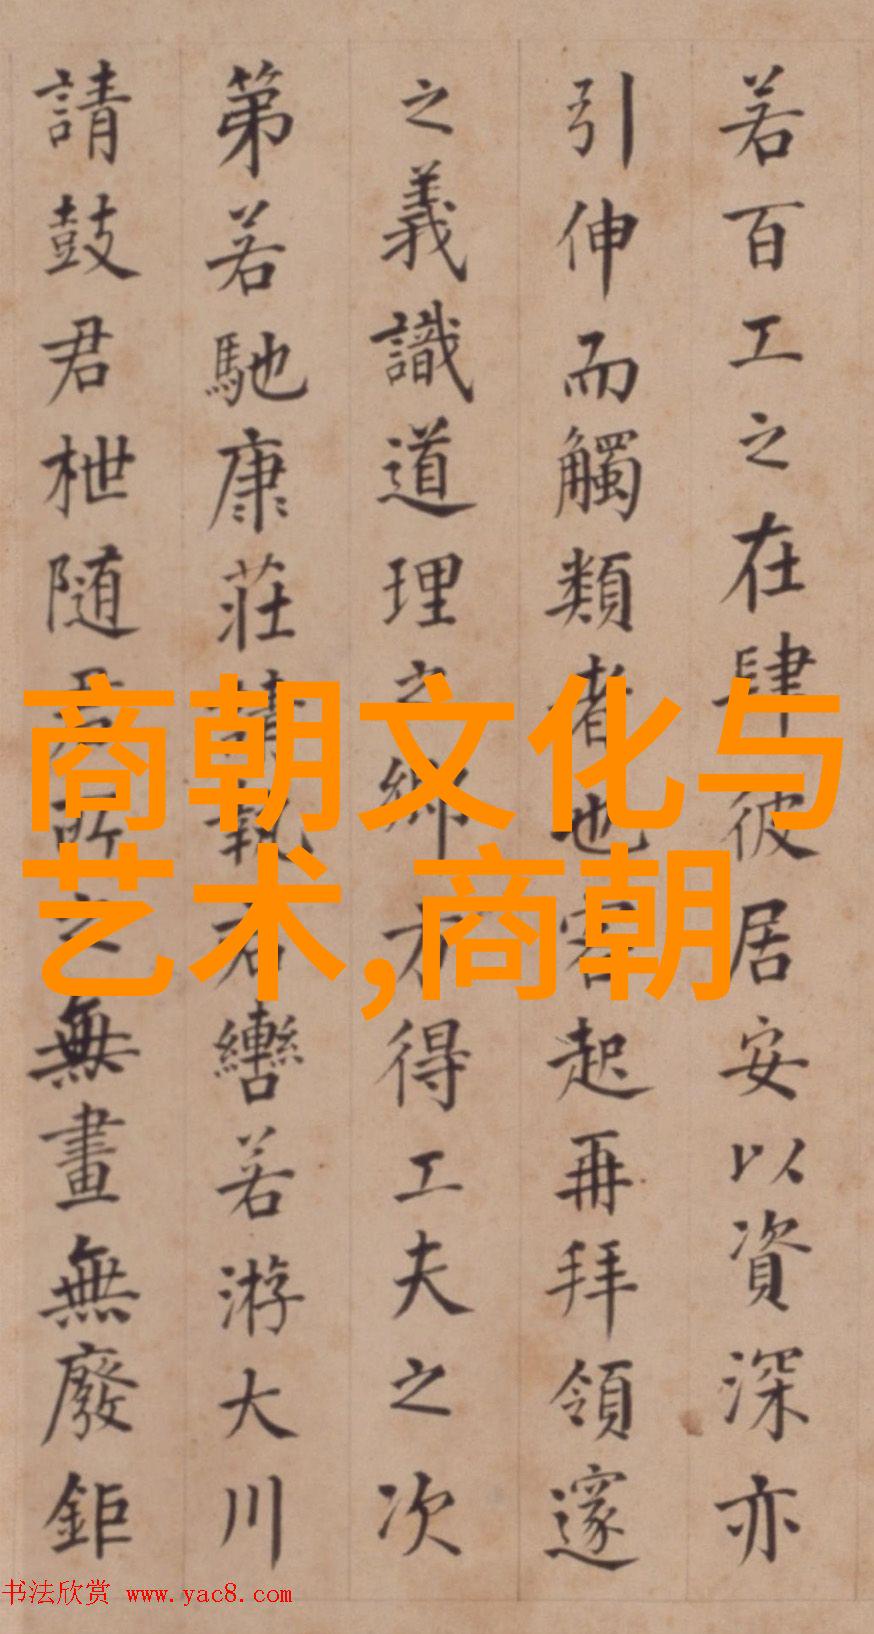 若百工之在肆彼居安以資深亦
引伸而觸類者也客起再拜領邃
之義識道理之鄉方得工夫之次
第若馳康莊請執君轡若游大川
請鼓君枻随君所之無畫無廢鉅
商朝文化与
艺术,商朝
书法欣赏 www.yac8.com